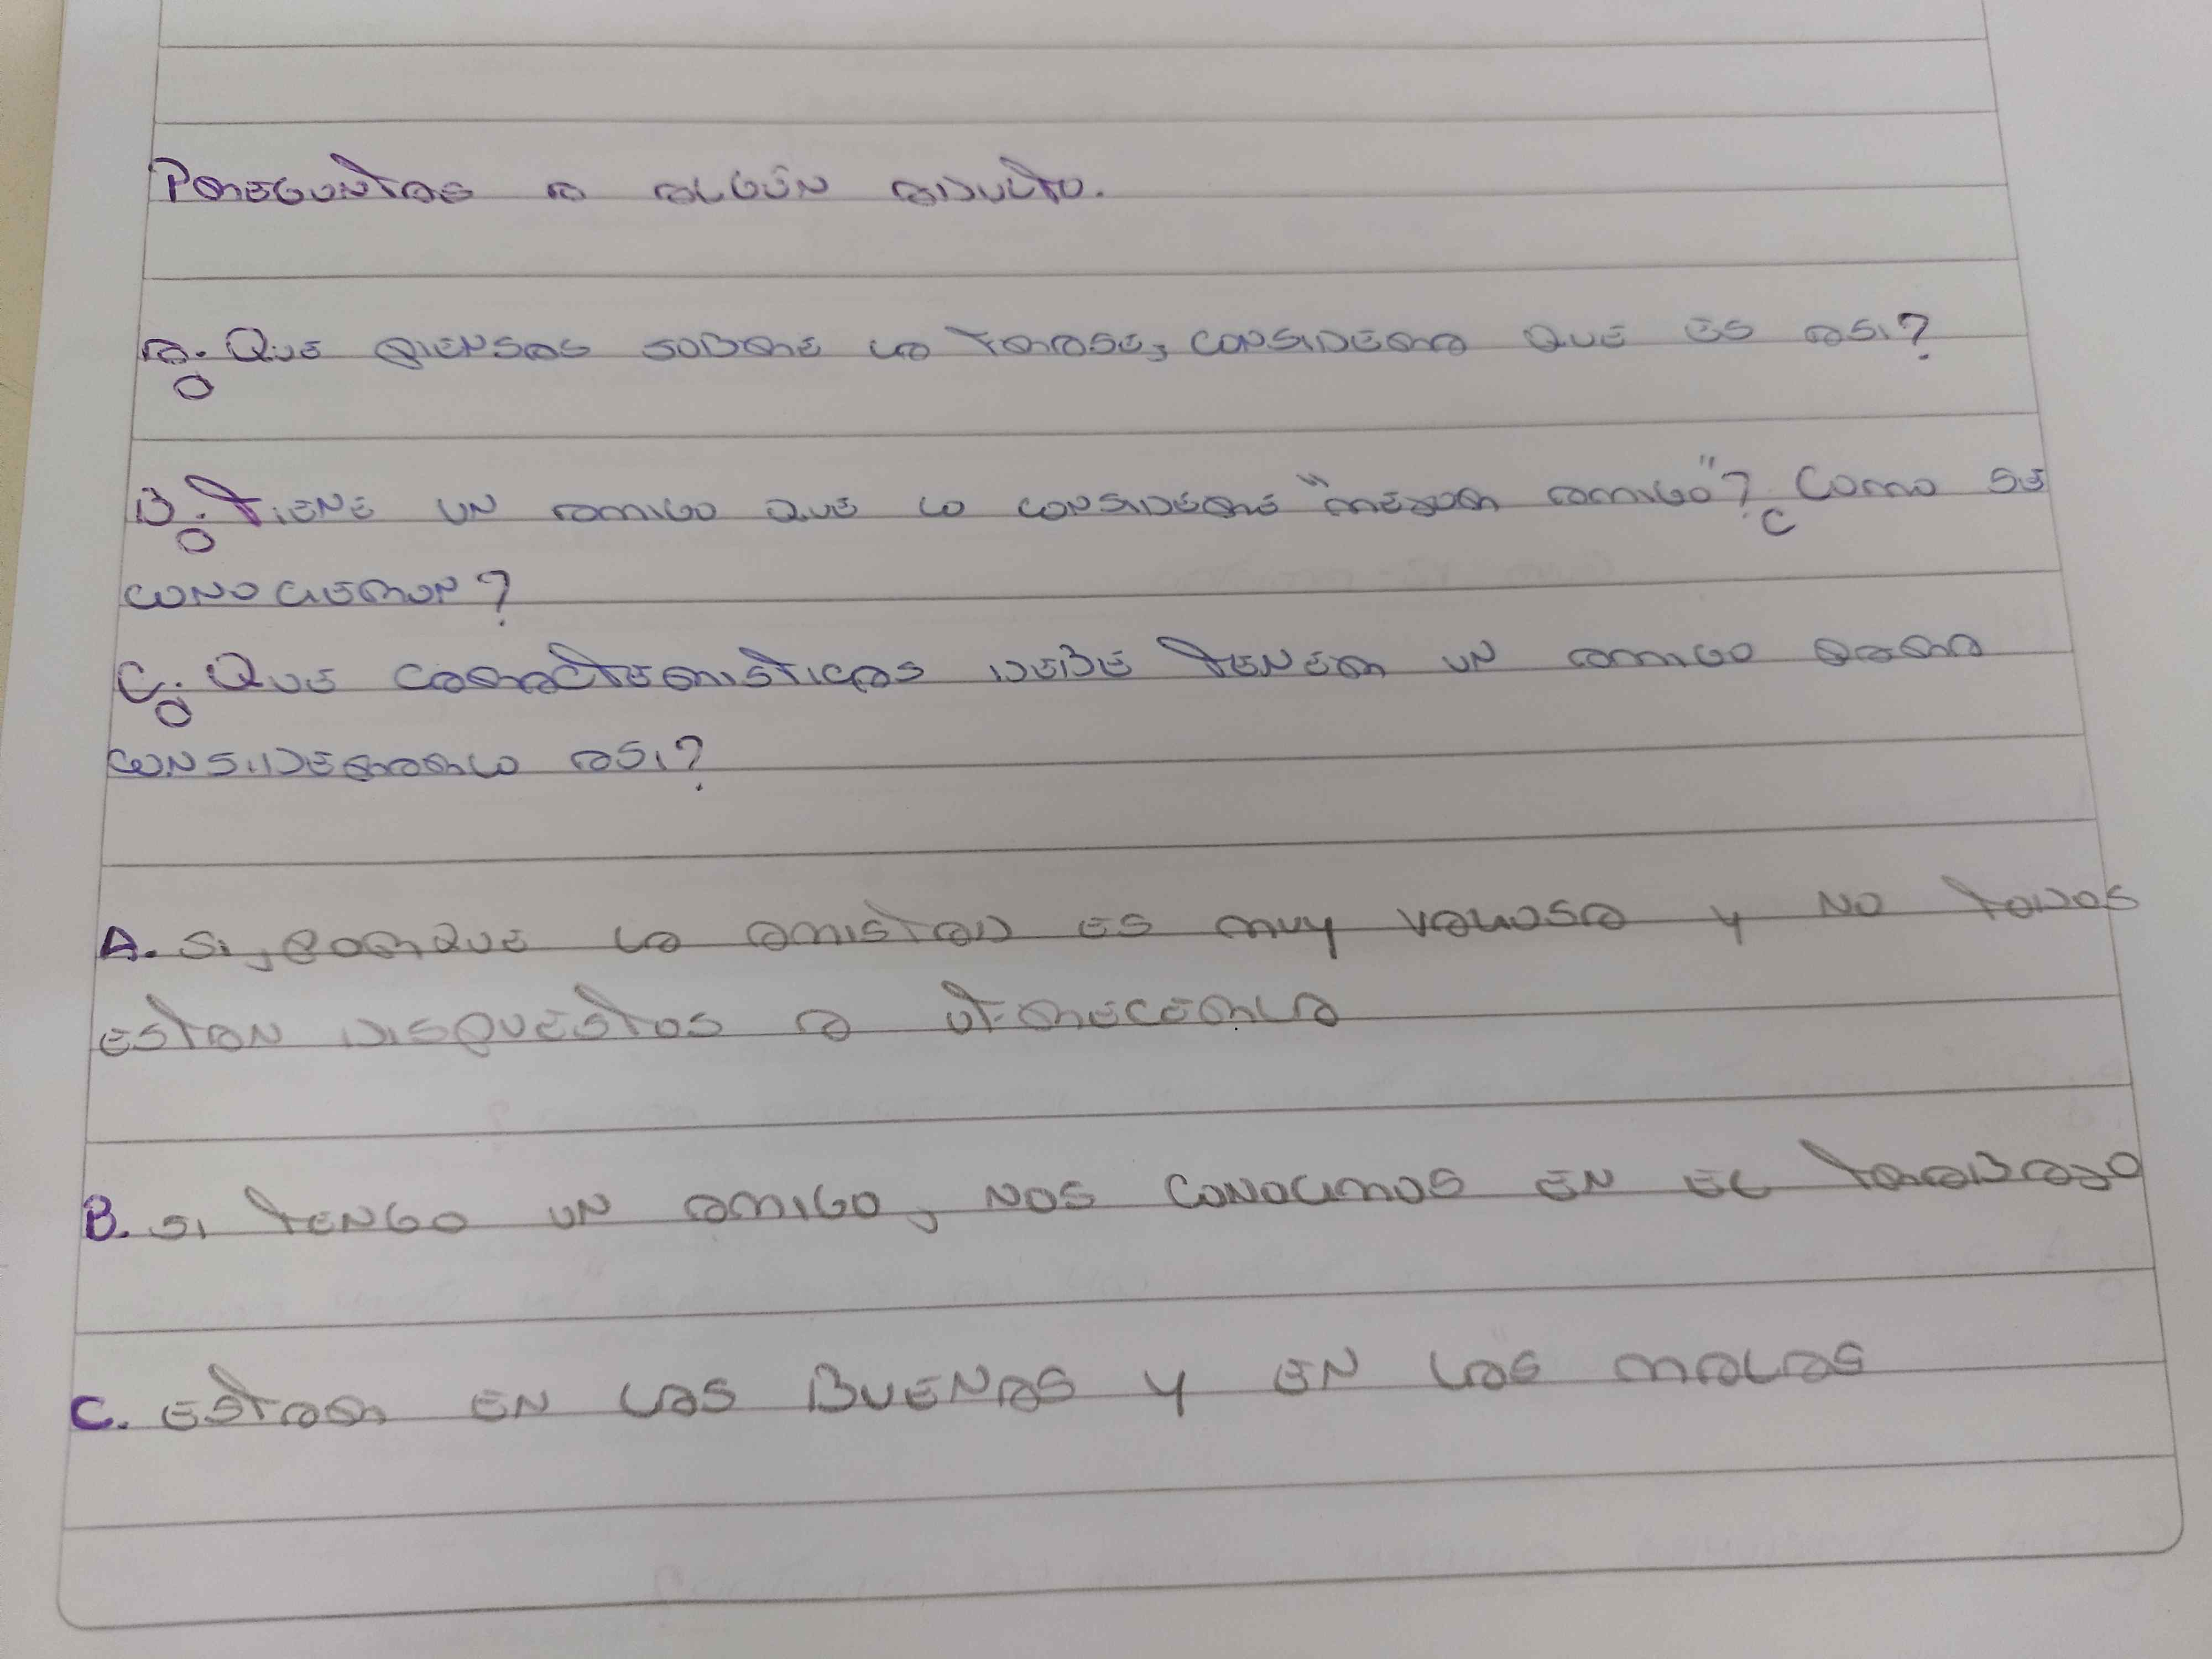 Preguntas a algún adulto.
a. Que piensas sobre la frase, considera que es asi?
B. Tiene un amigo que lo considere "mejor amigo"? ¿Como se
conocieron?
C. Que caracteristicas debe tener un amigo para
considerarlo asi?
A. si, porque la amistad es muy valiosa y no todos
estan dispuestos a ofrecerla
B. si tengo un amigo, nos conocimos en el trabajo
C. estar en las Buenas y en las malas